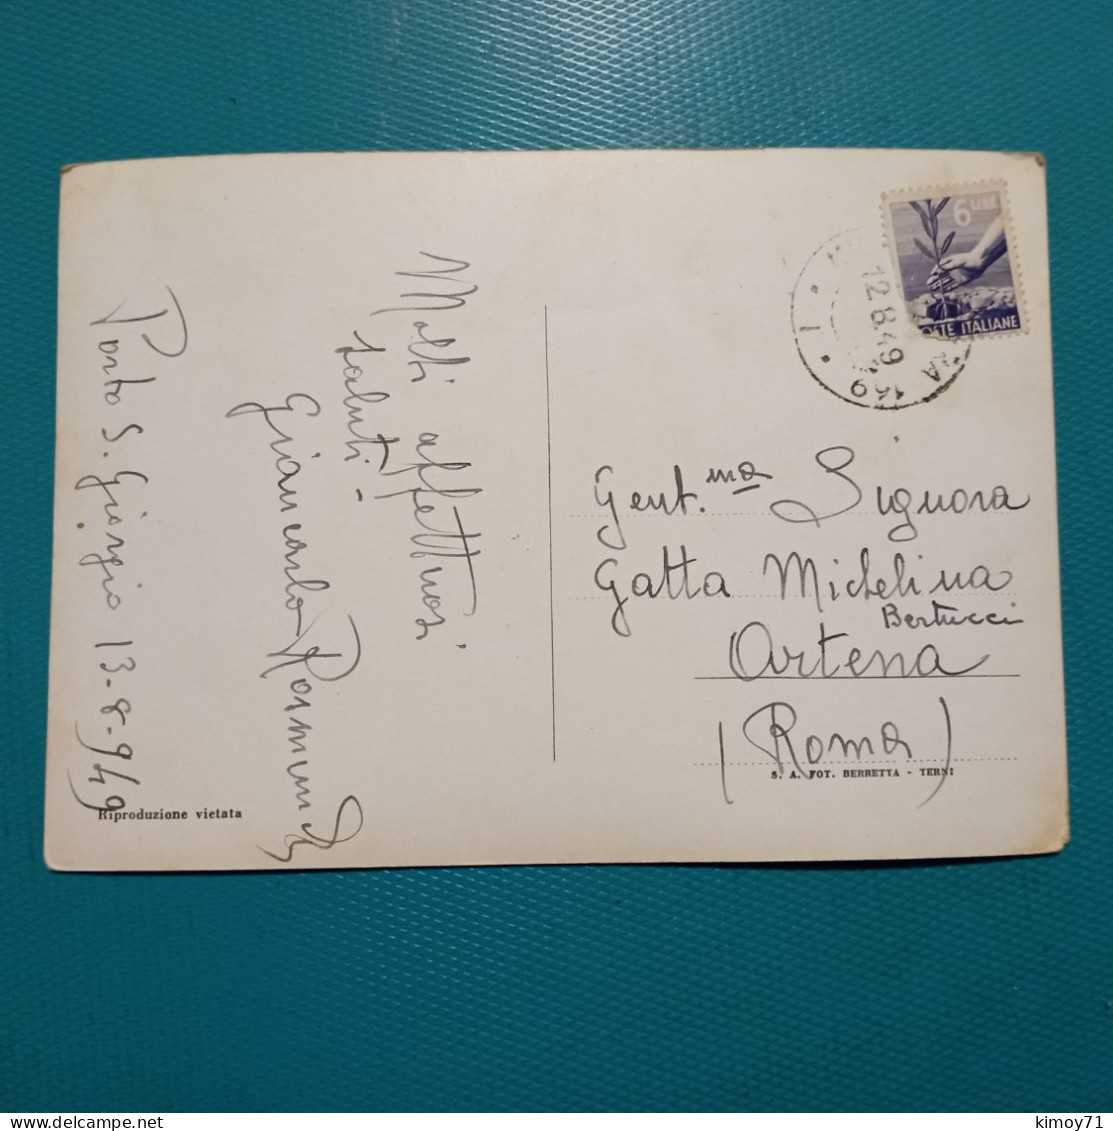 Porto S. Giorgio 13-8-949
Molti affettuosi
saluti -
Giancarlo
Riproduzione vietata
6 LIRE
POSTE ITALIANE
12.8.49
Gent.ma Signora
Gatta Michelina
Bertucci
Artena
(Roma)
S. A. FOT. BERRETTA - TERNI
kimoy71